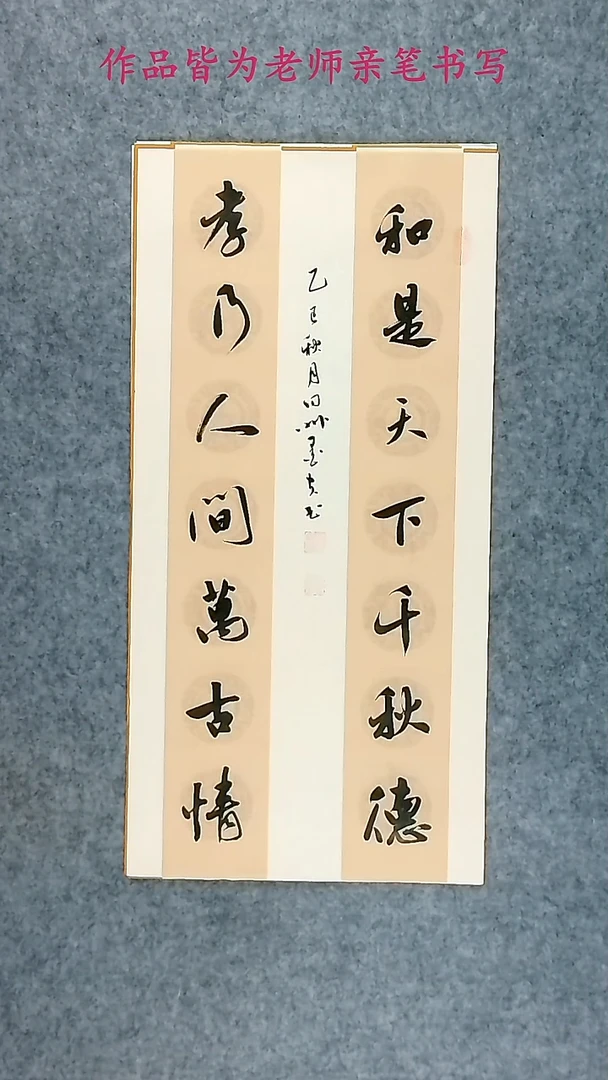 作品皆为老师亲笔书写
和是天下千秋德
孝乃人间萬古情
乙巳秋月
书